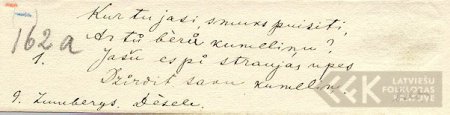 Kur tu jāsi smuks puisīti,
162a
Ar to bērū kumeliņu?
1.
Jāšu es pi straujas upes
Dzirdīt savu kumeliņ.
9. Dēsele.
LATVIEŠU
FOLKLORAS
KRĀTUVE